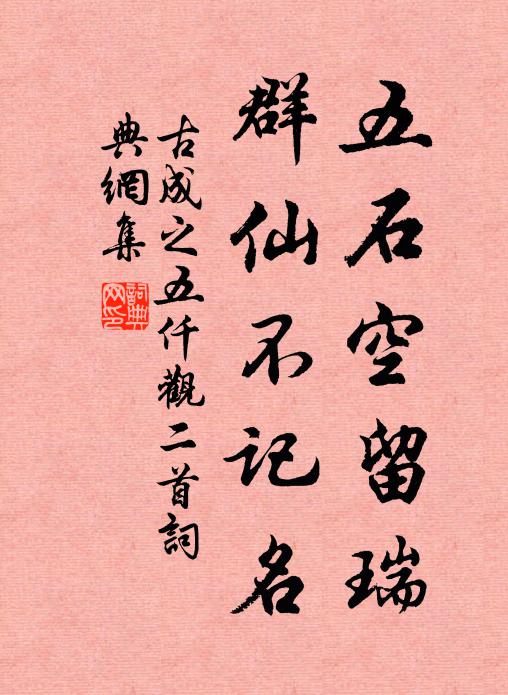 五石空留瑞
群仙不记名
古成之五仟觀二首詞
典網集
詞典
网印